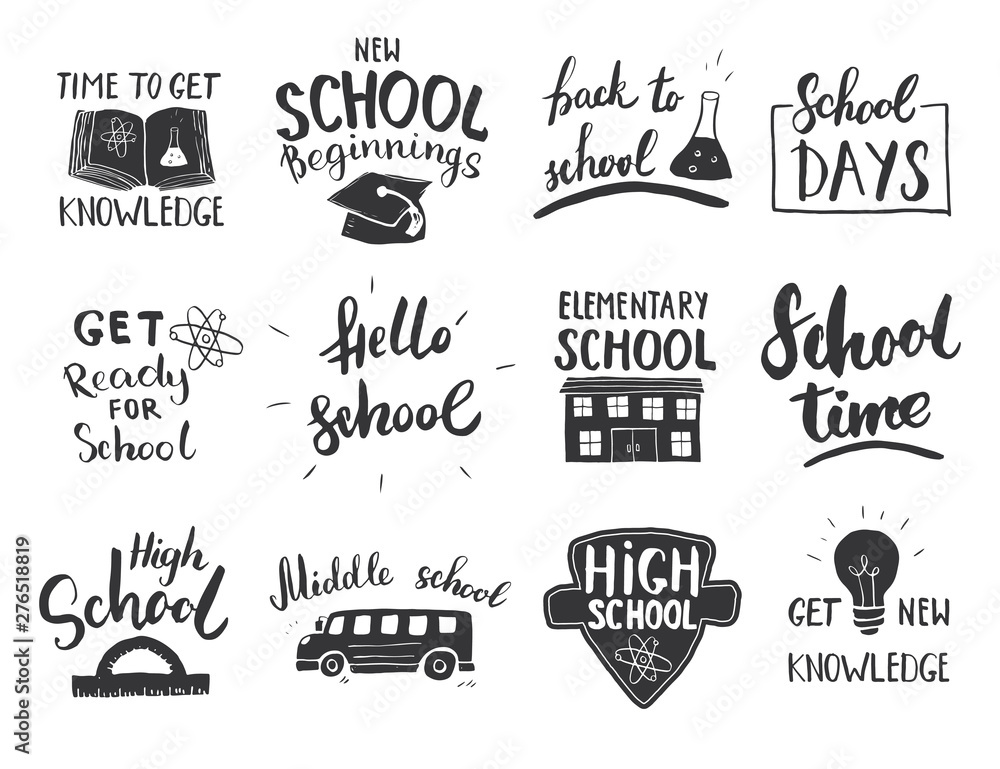 TIME TO GET
KNOWLEDGE
NEW
SCHOOL
Beginnings
back to
school
School
DAYS
GET
Ready
FOR
School
Hello
school
ELEMENTARY
SCHOOL
School
time
High
School
Middle school
HiGH
SCHOOL
GET NEW
KNOWLEDGE
Adobe Stock | #276518819